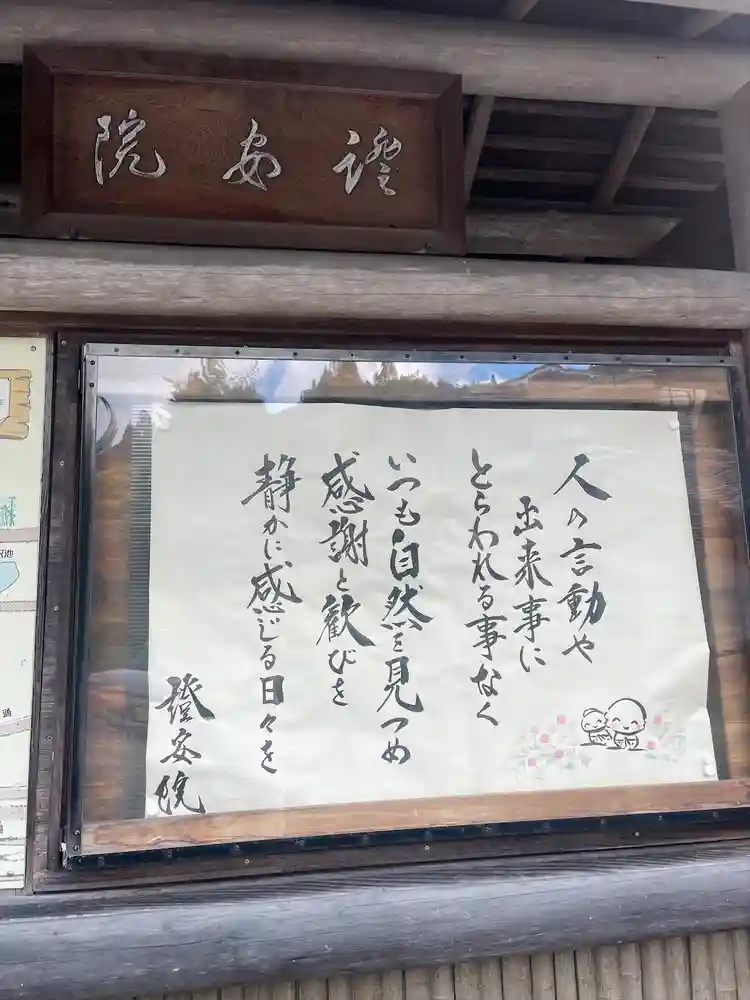 證安院
人の言動や
出来事に
とらわれる事なく
いつも自然を見つめ
感謝と歓びを
静かに感じる日々を
證安院
池
通